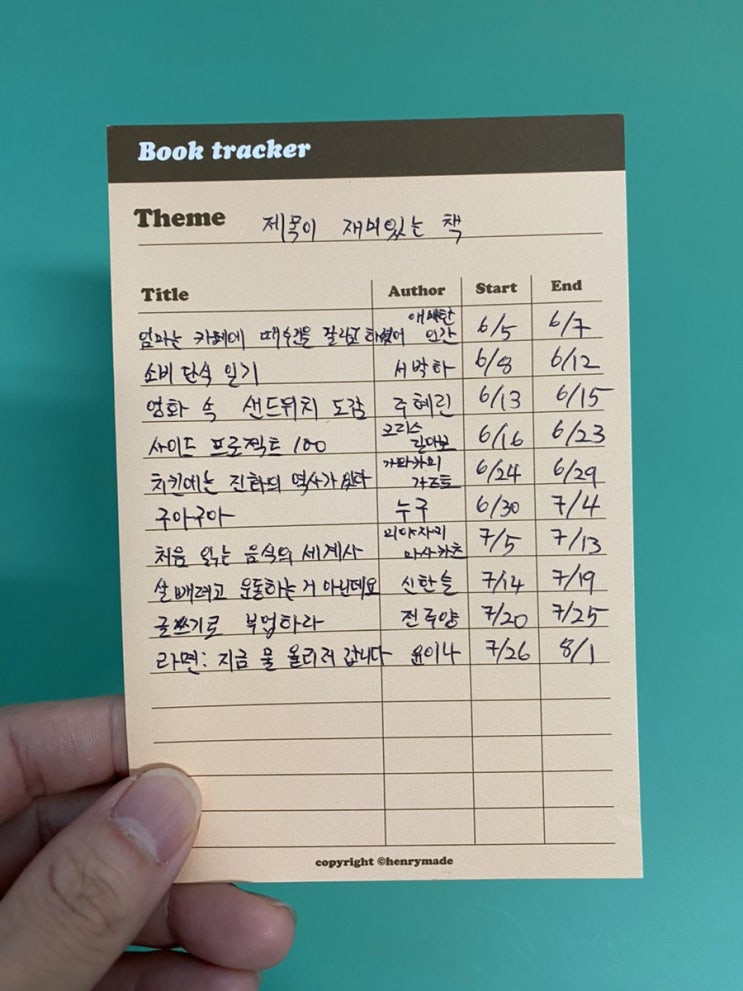 Book tracker
Theme 제목이 재미있는 책
Title Author Start End
엄마는 카페에 때수건을 팔라고 하셨어 애매한 인간 6/5 6/7
소비 단식 일기 서박하 6/8 6/12
영화 속 샌드위치 도감 주혜린 6/13 6/15
사이드 프로젝트 100 크리스 길아보 6/16 6/23
치킨에는 진화의 역사가 있다 가와카미 가즈토 6/24 6/29
구아구아 누구 6/30 7/4
처음 읽는 음식의 세계사 미야자키 마사카츠 7/5 7/13
살 빼려고 운동하는 거 아닌데요 신한슬 7/14 7/19
글쓰기로 부업하라 전주양 7/20 7/25
라면: 지금 물 올리러 갑니다 윤이나 7/26 8/1
copyright ©henrymade